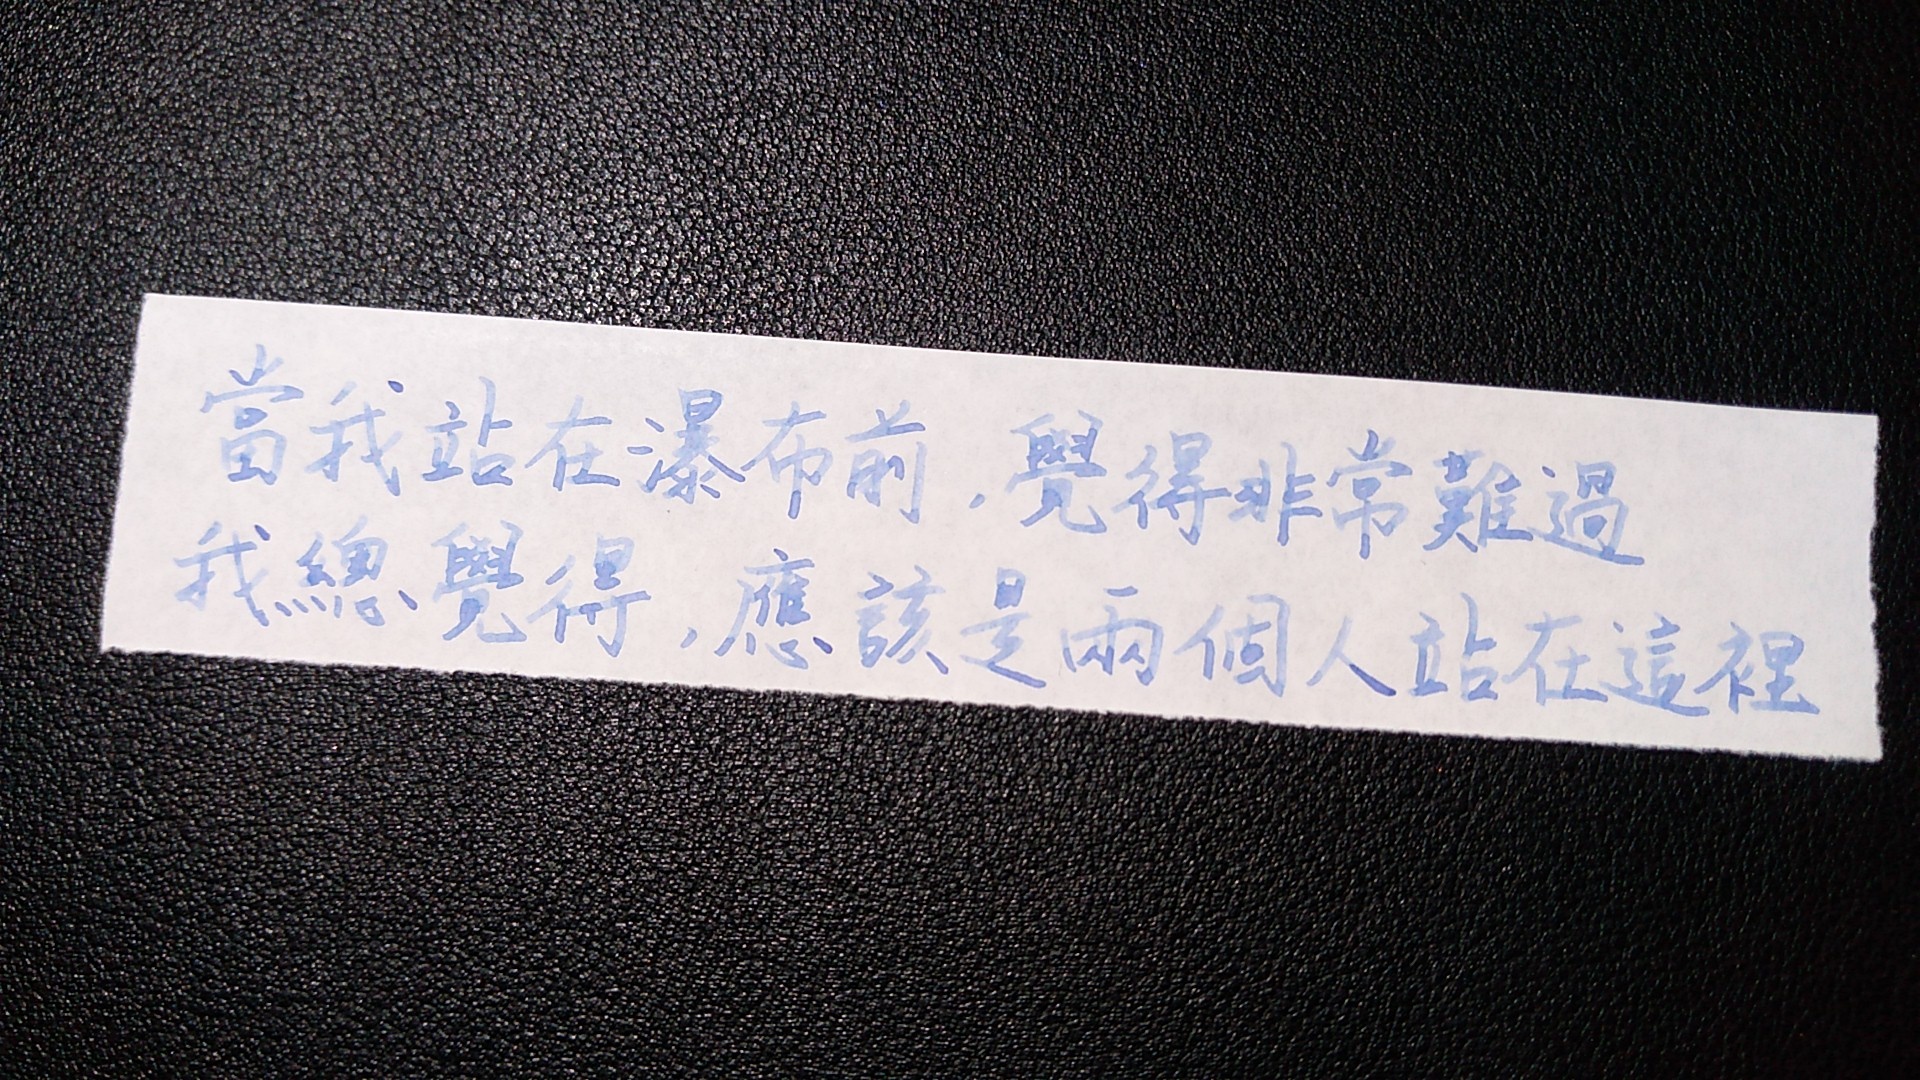 當我站在瀑布前，覺得非常難過
我總覺得，應該是兩個人站在這裡